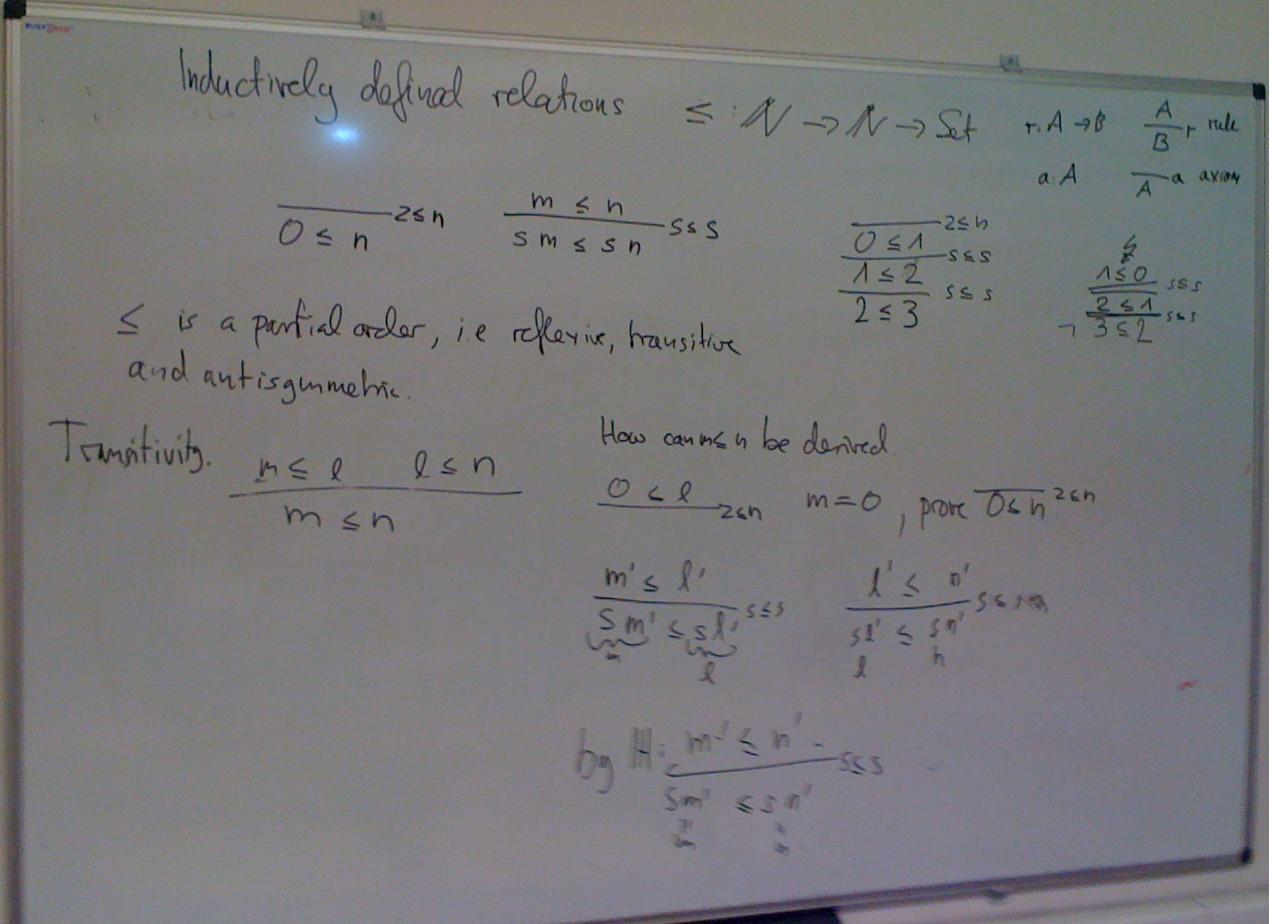 Inductively defined relations ≤ : ℕ → ℕ → Set
r: A → B A/B r rule
a: A ‾A a axiom
‾‾‾ z≤n
0 ≤ n
m ≤ n
――― s≤s
s m ≤ s n
‾‾‾ z≤n
0 ≤ 1
――― s≤s
1 ≤ 2
――― s≤s
2 ≤ 3
↯
1 ≤ 0
――― s≤s
2 ≤ 1
――― s≤s
¬ 3 ≤ 2
≤ is a partial order, i.e reflexive, transitive
and antisymmetric.
Transitivity.
m ≤ l l ≤ n
―――――
m ≤ n
How can m≤n be derived.
0 ≤ l
――― z≤n
m = 0, prove ‾0≤n‾ z≤n
m' ≤ l'
――― s≤s
s m' ≤ s l'
m l
l' ≤ n'
――― s≤s
sl' ≤ sn'
l n
by IH: m' ≤ n'
――― s≤s
sm' ≤ sn'